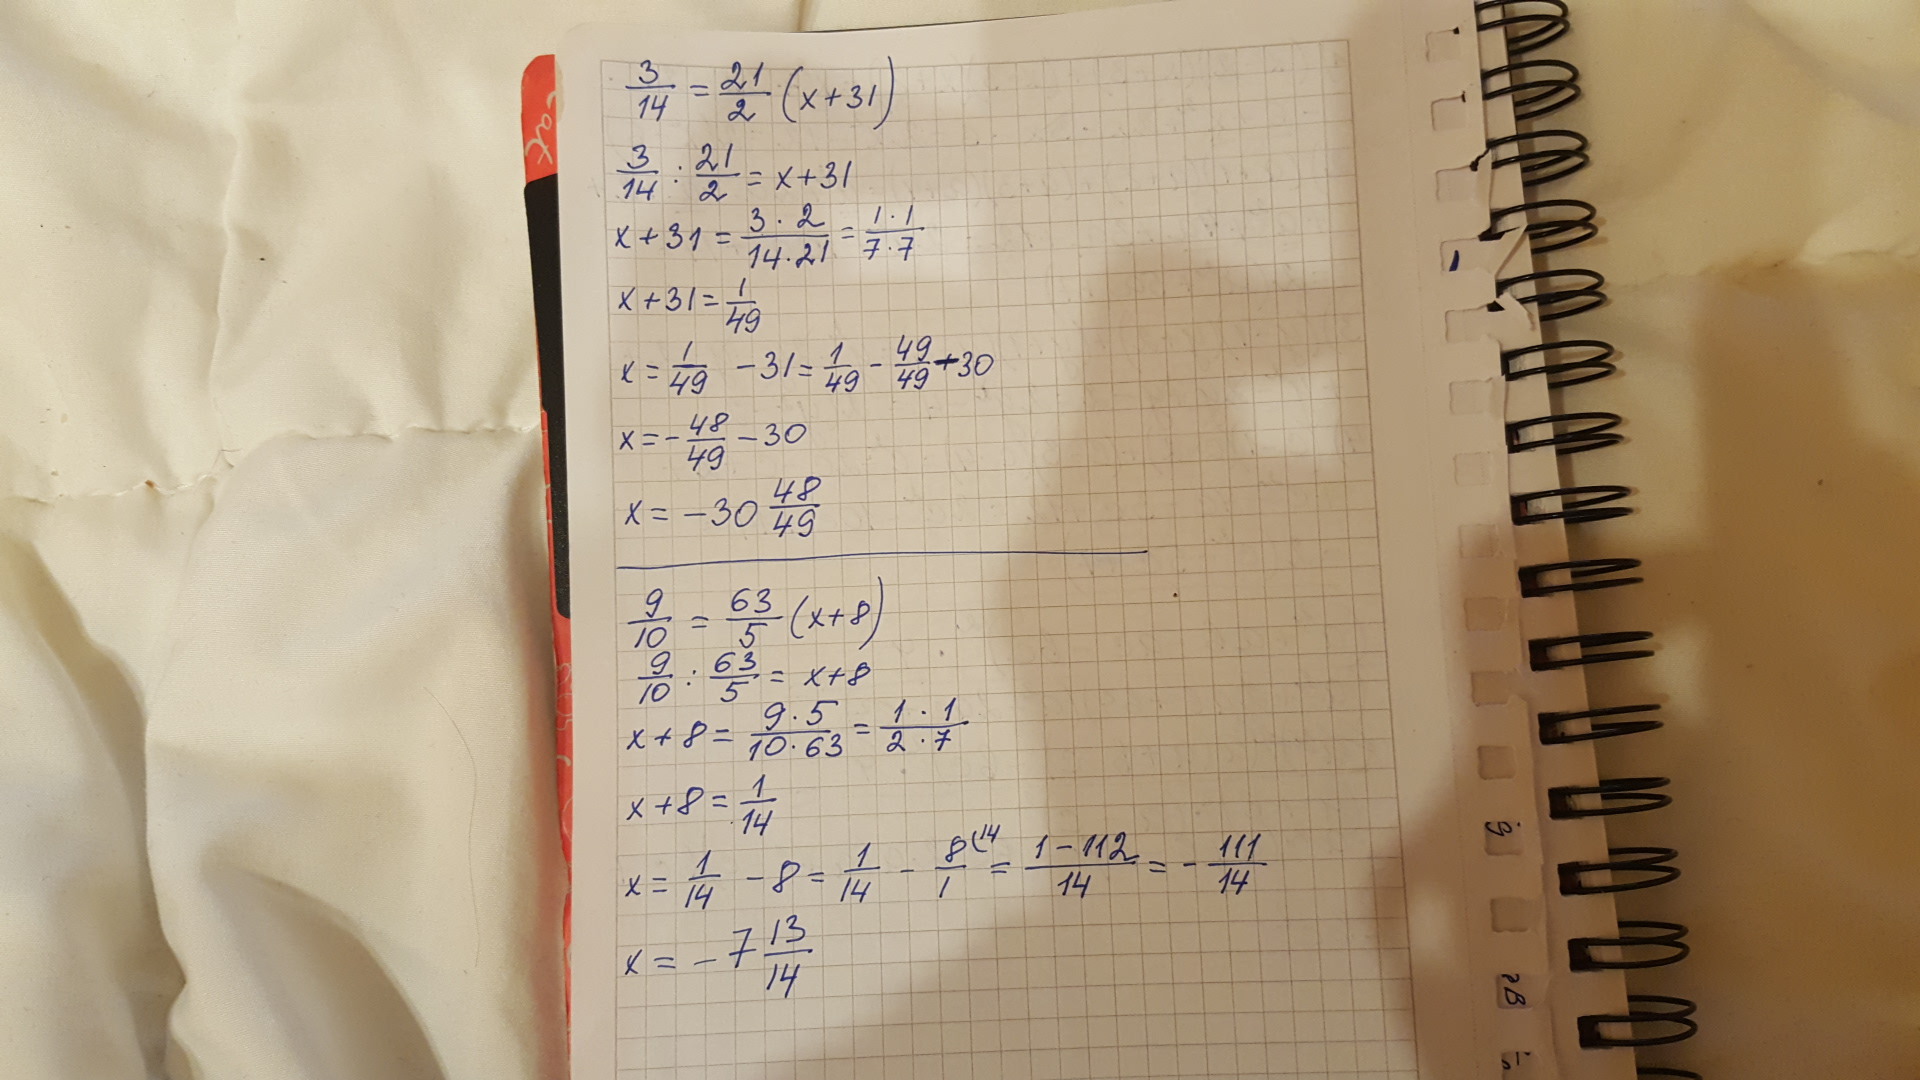 3/14 = 21/2 (x+31)
3/14 : 21/2 = x+31
x+31 = (3·2)/(14·21) = (1·1)/(7·7)
x+31 = 1/49
x = 1/49 - 31 = 1/49 - 49/49 + 30
x = -48/49 - 30
x = -30 48/49
9/10 = 63/5 (x+8)
9/10 : 63/5 = x+8
x+8 = (9·5)/(10·63) = (1·1)/(2·7)
x+8 = 1/14
x = 1/14 - 8 = 1/14 - 8/1 (14 = (1-112)/14 = -111/14
x = -7 13/14